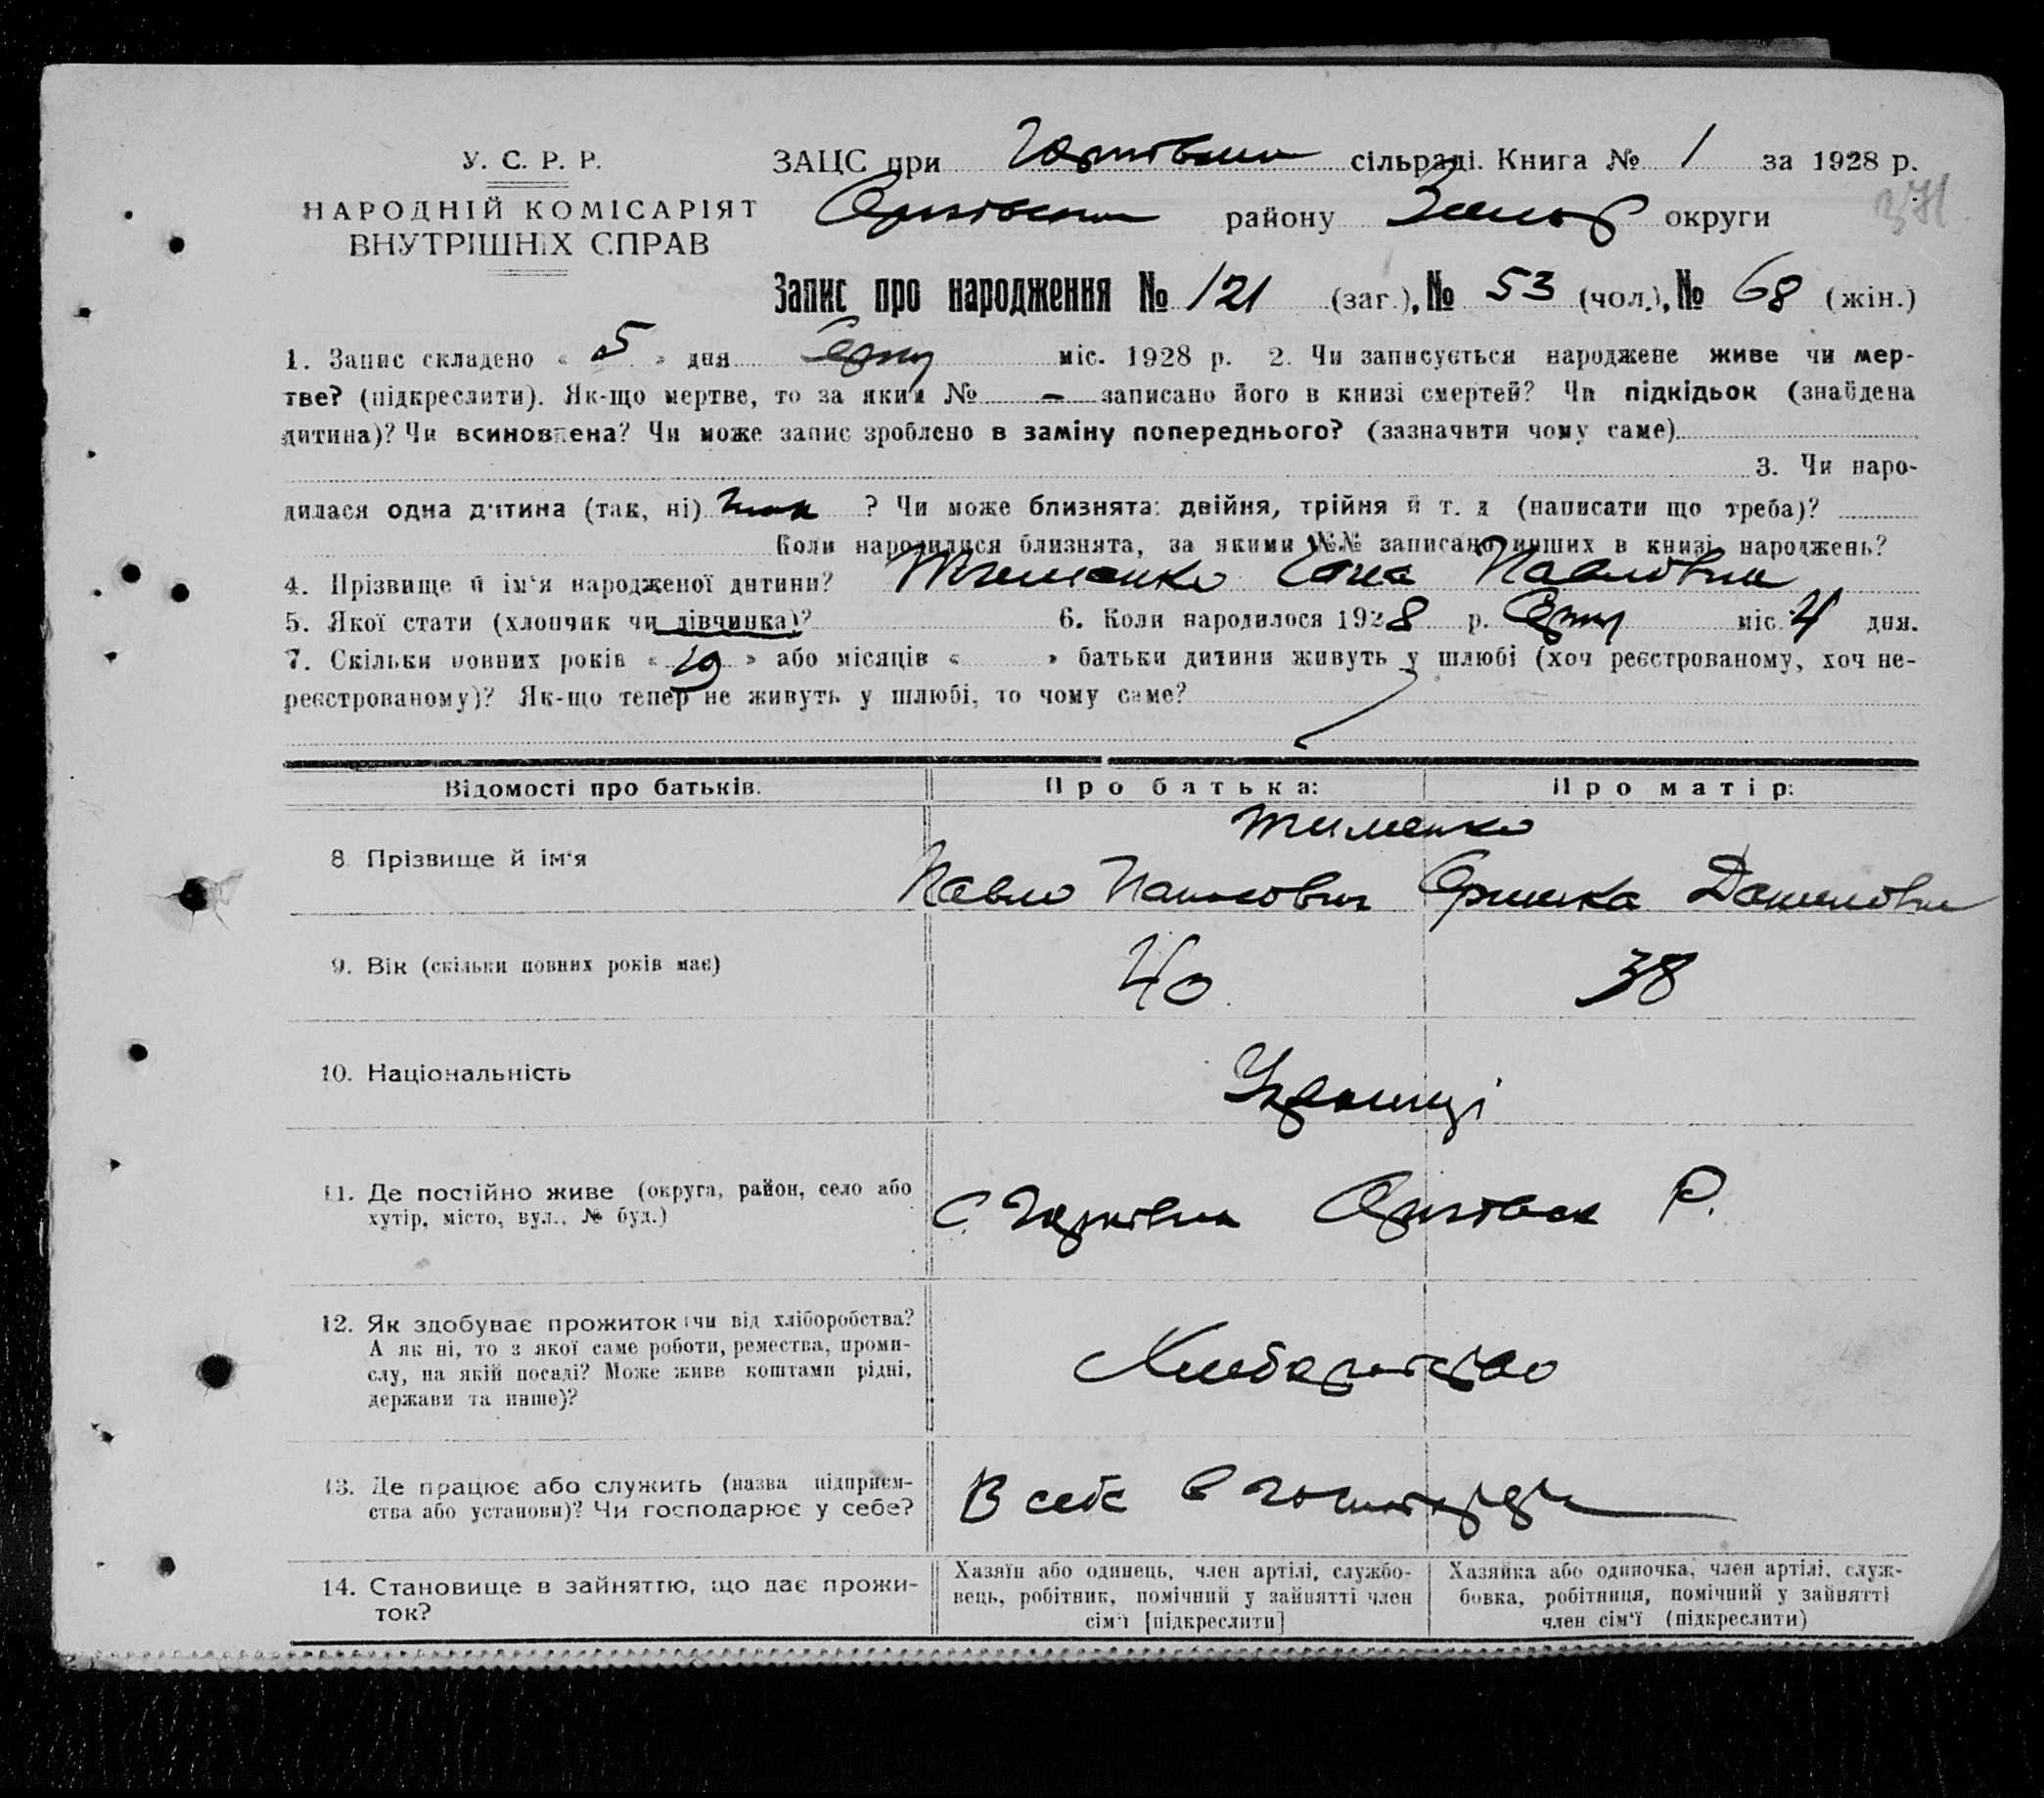 У. С. Р. Р.
НАРОДНІЙ КОМІСАРІЯТ
ВНУТРІШНІХ СПРАВ
ЗАЦС при сільраді. Книга № 1 за 1928 р.
району округи
371
Запис про народження № 121 (заг.), № 53 (чол.), № 68 (жін.)
1. Запис складено « 5 » дня Серпня міс. 1928 р. 2. Чи записується народжене живе чи мер-
тве? (підкреслити). Як-що мертве, то за яким № – записано його в книзі смертей? Чи підкідьок (знайдена
дитина)? Чи всиновлена? Чи може запис зроблено в заміну попереднього? (зазначити чому саме)
3. Чи наро-
дилася одна дитина (так, ні) так ? Чи може близнята: двійня, трійня й т. д (написати що треба)?
Коли народилися близнята, за якими №№ записано инших в книзі народжень?
4. Прізвище й ім'я народженої дитини? Тименко Павловна
5. Якої стати (хлопчик чи дівчинка)? 6. Коли народилося 1928 р. Серпня міс. 4 дня.
7. Скільки повних років « 19 » або місяців « » батьки дитини живуть у шлюбі (хоч реєстрованому, хоч не-
реєстрованому)? Як-що тепер не живуть у шлюбі, то чому саме?
Відомості про батьків. Про батька: Про матір:
8 Прізвище й ім'я Тименко
Павло Оришка Даниловна
9. Вік (скільки повних років має) 40 38
10. Національність Українці
11. Де постійно живе (округа, район, село або
хутір, місто, вул., № буд.) С. Р.
12. Як здобуває прожиток (чи від хліборобства?
А як ні, то з якої саме роботи, ремества, проми-
слу, на якій посаді? Може живе коштами рідні,
держави та инше)?
13. Де працює або служить (назва підприєм-
ства або установи)? Чи господарює у себе? В себе в
14. Становище в зайняттю, що дає прожи-
ток?
Хазяїн або одинець, член артілі, службо-
вець, робітник, помічний у зайнятті член
сім'ї [підкреслити]
Хазяйка або одиночка, член артілі, служ-
бовка, робітниця, помічний у зайнятті
член сім'ї (підкреслити)